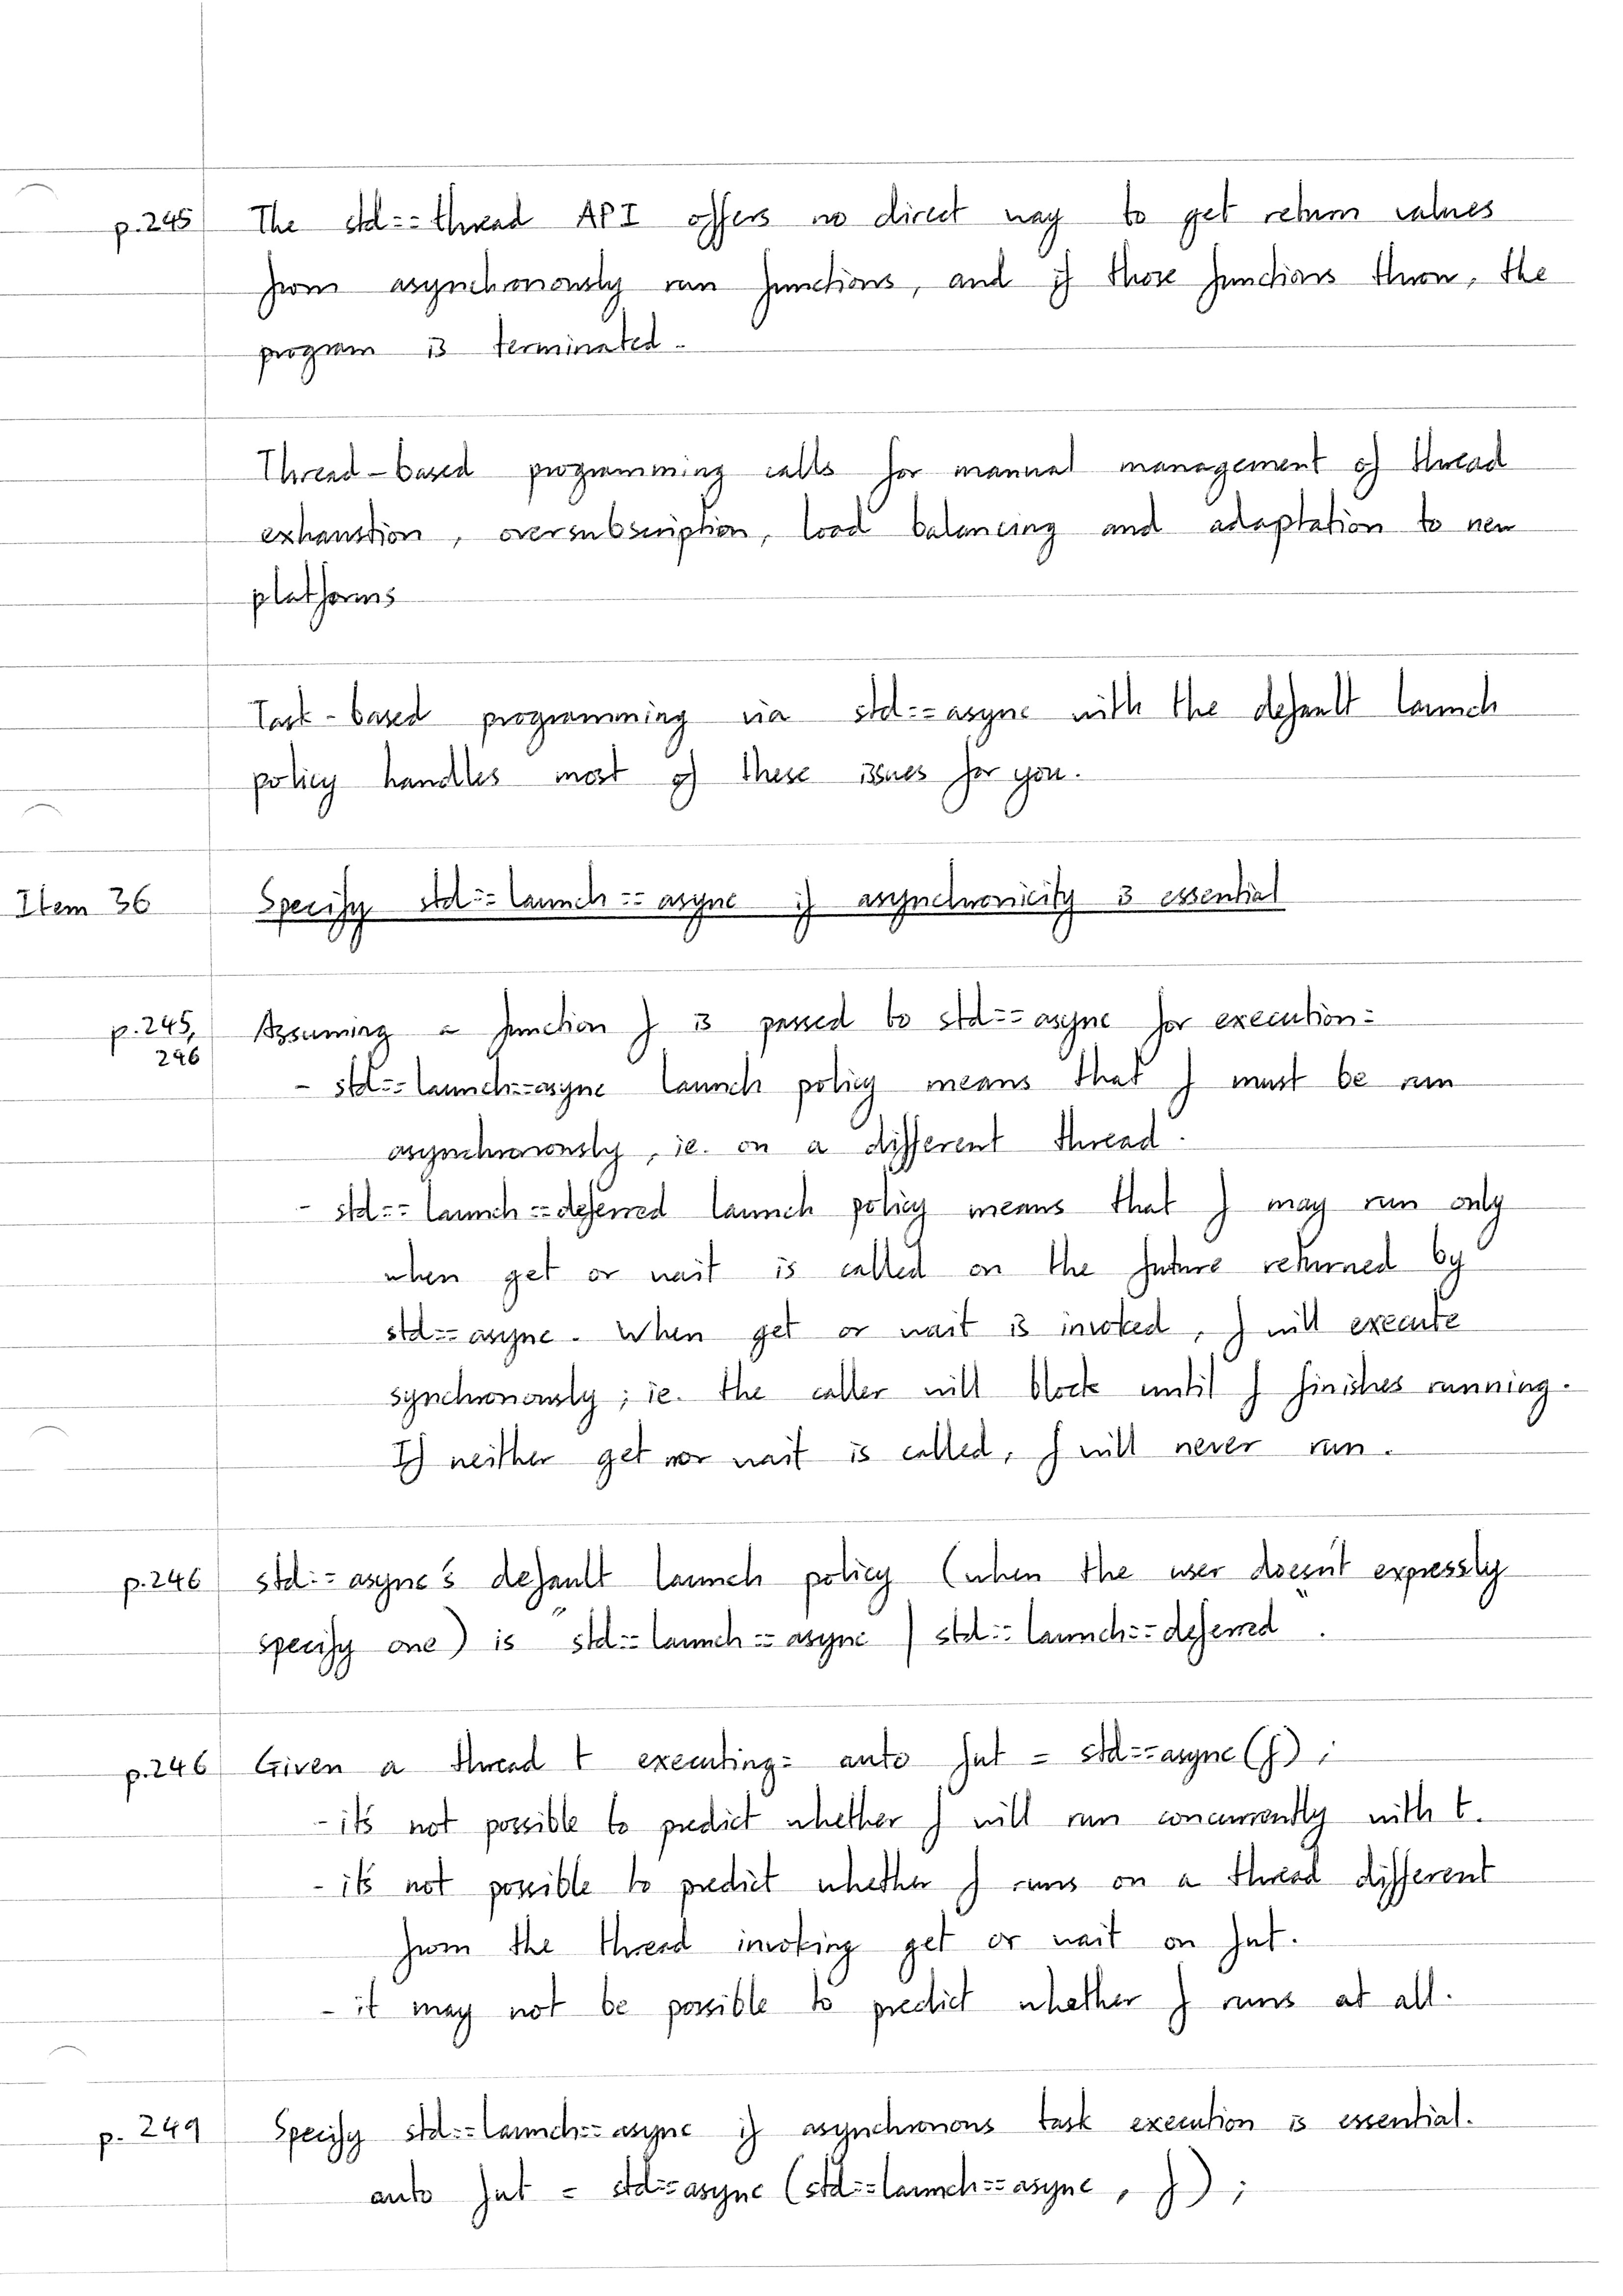 p.245 The std::thread API offers no direct way to get return values
from asynchronously run functions, and if those functions throw, the
program is terminated.
Thread-based programming calls for manual management of thread
exhaustion, oversubscription, load balancing and adaptation to new
platforms
Task-based programming via std::async with the default launch
policy handles most of these issues for you.
Item 36 Specify std::launch::async if asynchronicity is essential
p.245, Assuming a function f is passed to std::async for execution:
246
- std::launch::async launch policy means that f must be run
asynchronously, ie. on a different thread.
- std::launch::deferred launch policy means that f may run only
when get or wait is called on the future returned by
std::async. When get or wait is invoked, f will execute
synchronously; ie. the caller will block until f finishes running.
If neither get nor wait is called, f will never run.
p.246 std::async's default launch policy (when the user doesn't expressly
specify one) is "std::launch::async | std::launch::deferred".
p.246 Given a thread t executing: auto fut = std::async(f);
- it's not possible to predict whether f will run concurrently with t.
- it's not possible to predict whether f runs on a thread different
from the thread invoking get or wait on fut.
- it may not be possible to predict whether f runs at all.
p. 249 Specify std::launch::async if asynchronous task execution is essential.
auto fut = std::async (std::launch::async, f);